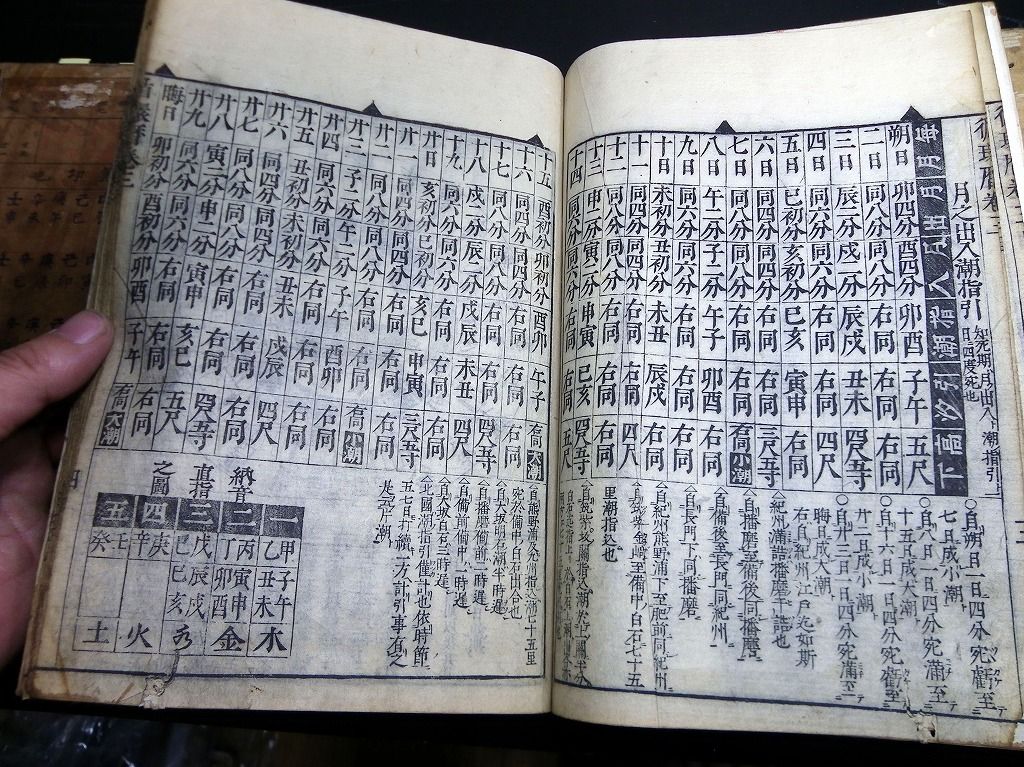 月之出入潮指引
毎月月出入潮指引汐高下
朔日 卯四分 酉四分 卯酉 子午 五尺
二日 同八分 同八分 右同 右同 右同
三日 辰二分 戌二分 辰戌 丑未 四尺五寸
四日 同六分 同六分 右同 右同 四尺
五日 巳初分 亥初分 巳亥 寅申 右同
六日 同四分 同四分 右同 右同 三尺五寸
七日 同八分 同八分 右同 右同 右同 小潮
八日 午二分 子二分 子午 卯酉 右同
九日 同六分 同六分 右同 右同 右同
十日 未初分 丑初分 未丑 辰戌 右同
十一 同四分 同四分 右同 右同 四尺
十二 同八分 同八分 右同 右同 右同
十三 申二分 寅二分 申寅 巳亥 四尺五寸
十四 同六分 同六分 右同 右同 五尺
〇自朔日一日四分宛虧至
七日成小潮
〇自八日一日四分宛滿至
十五日成大潮
〇自十六日一日四分宛虧至
廿二日成小潮
〇自廿三日一日四分宛滿至
晦日成大潮
右自紀州江戸迄如斯
紀州滿詰播磨干詰也
自播磨至備後同播磨
自備後至長門同紀州
自長門下同播磨
自紀州熊野浦下至肥前同紀州
里潮指込也
十五 酉初分 卯初分 酉卯 午子 右同 大潮
十六 同四分 同四分 右同 右同 右同
十七 同八分 同八分 右同 右同 四尺五寸
十八 戌二分 辰二分 戌辰 未丑 四尺
十九 同六分 同六分 右同 右同 右同
廿日 亥初分 巳初分 亥巳 申寅 三尺五寸
廿一 同四分 同四分 右同 右同 右同
廿二 同八分 同八分 右同 右同 右同 小潮
廿三 子二分 午二分 子午 酉卯 右同
廿四 同六分 同六分 右同 右同 右同
廿五 丑初分 未初分 丑未 戌辰 四尺
廿六 同四分 同四分 右同 右同 右同
廿七 同八分 同八分 右同 右同 四尺五寸
廿八 寅二分 申二分 寅申 亥巳 五尺
廿九 同六分 同六分 右同 右同 右同
晦日 卯初分 酉初分 卯酉 子午 右同 大潮
自大坂明石潮半時遲
自播磨備前二時遲
自備前備中一時遲
自大坂白石三時遲
北國潮指引僅計也依時節
五七日打續一方計引事有之
納音
直指
之圖
一 甲乙 子午丑未 木
二 丙丁 寅申卯酉 金
三 戊己 辰戌巳亥 水
四 庚辛 火
五 壬癸 土